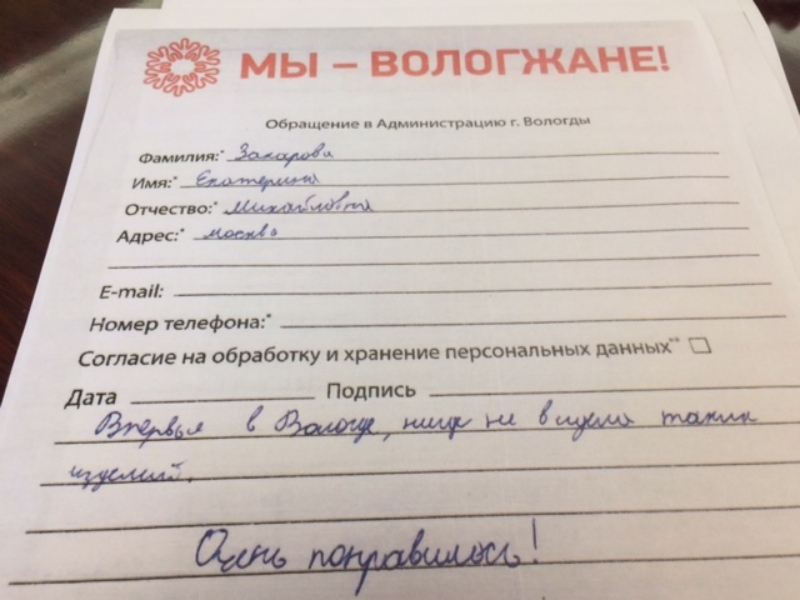 МЫ – ВОЛОГЖАНЕ!
Обращение в Администрацию г. Вологды
Фамилия:* Захарова
Имя:* Екатерина
Отчество:* Михайловна
Адрес:* Москва
E-mail:
Номер телефона:*
Согласие на обработку и хранение персональных данных** ☐
Дата Подпись
Впервые в Вологде, нигде не видела таких
изделий.
Очень понравилось!